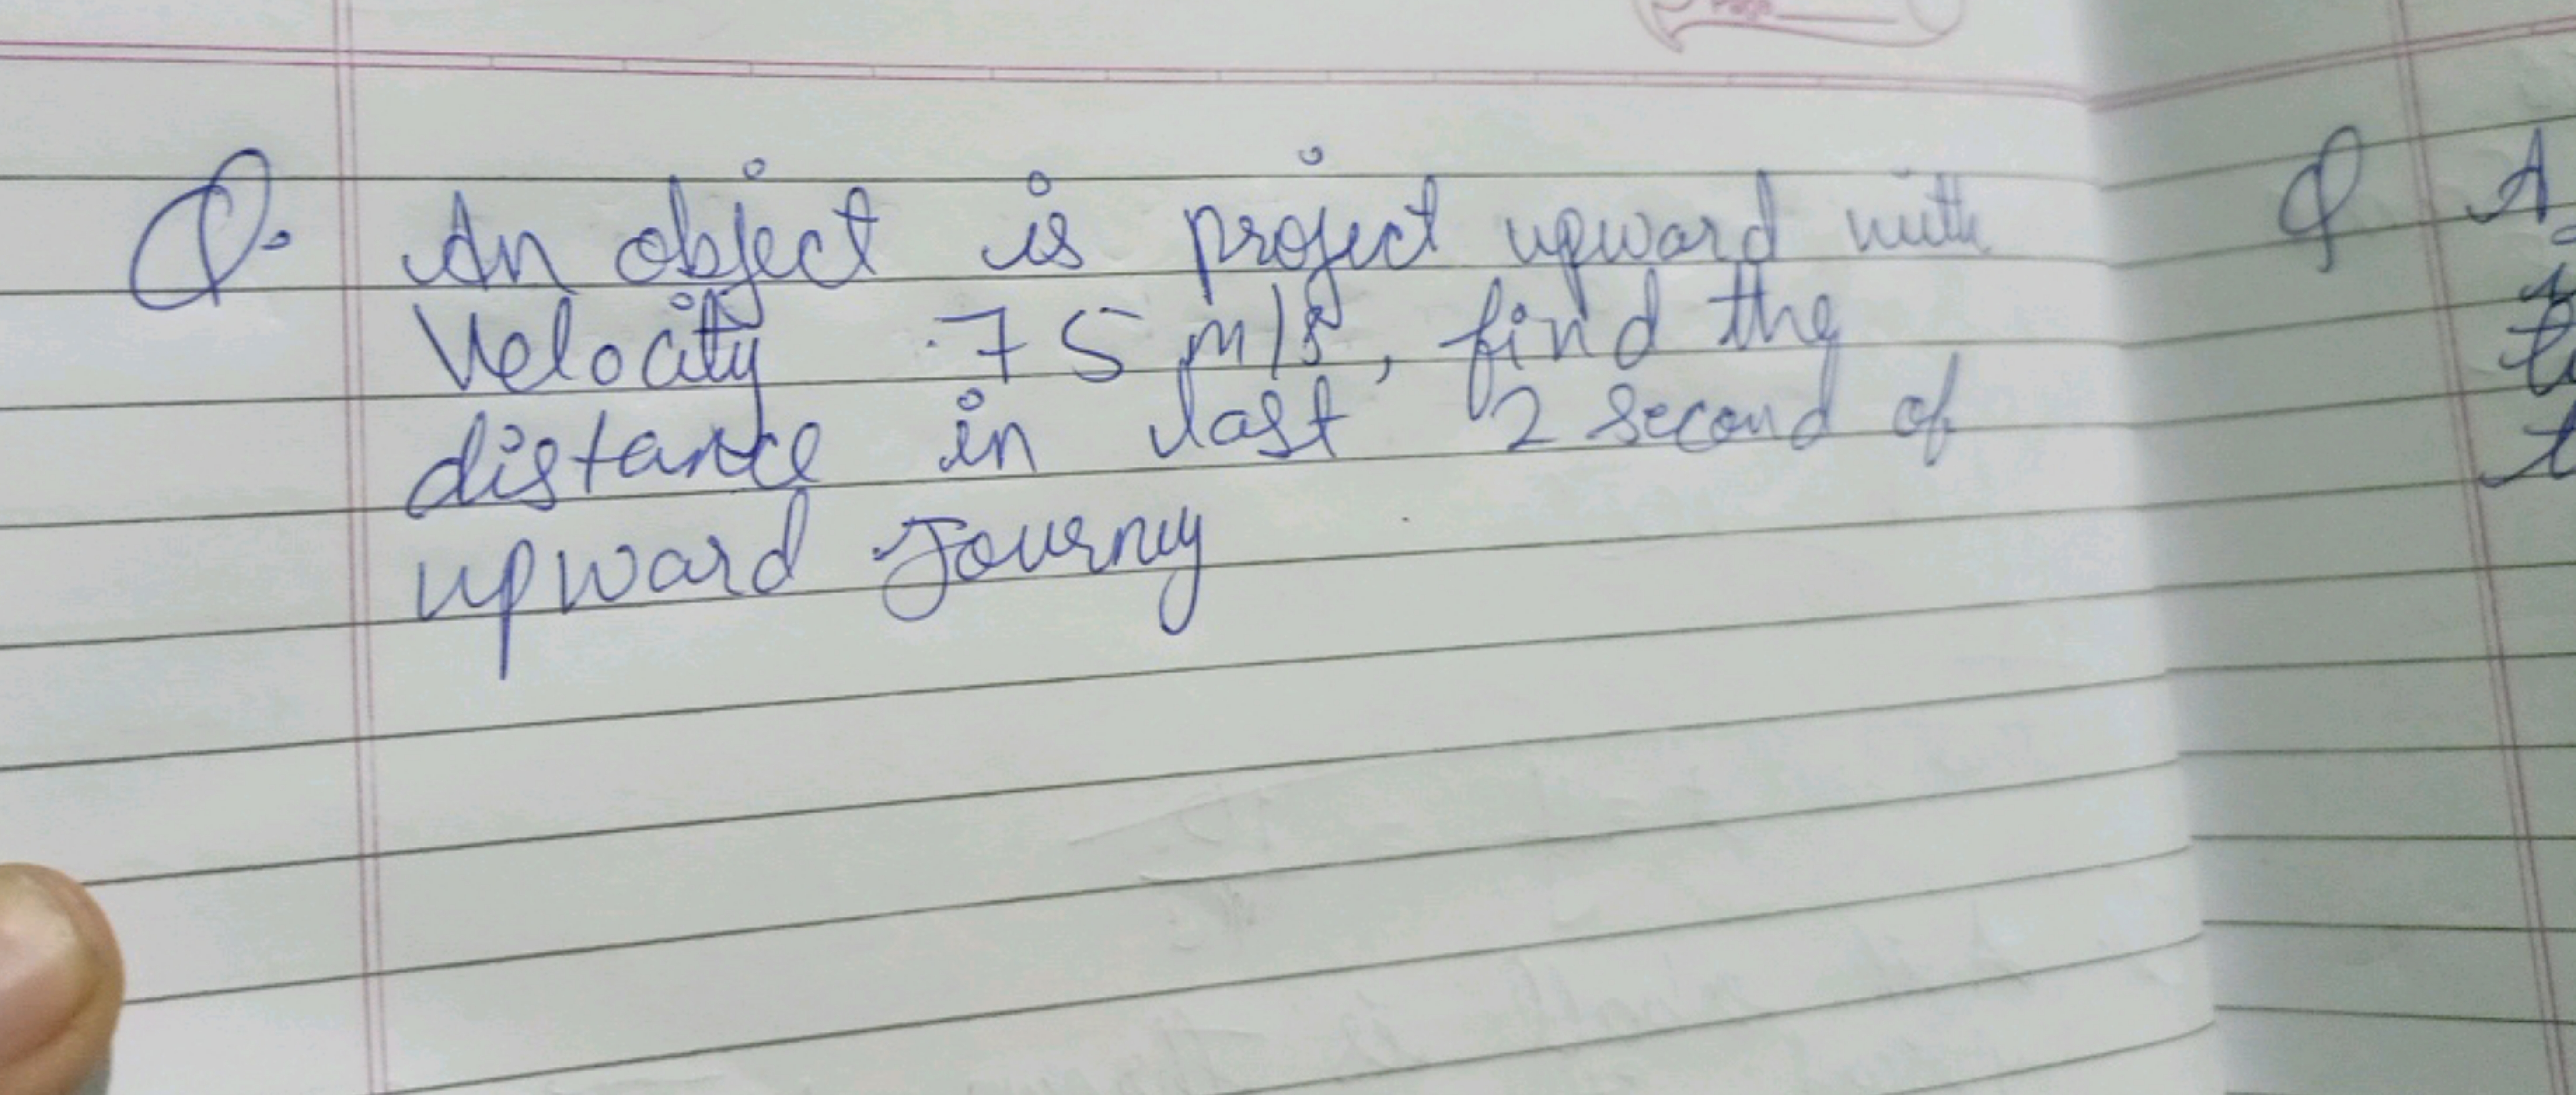 Q. An object is project upward with
Velocity 75 m/s, find the
distance in last 2 second of
upward Journey
Q A